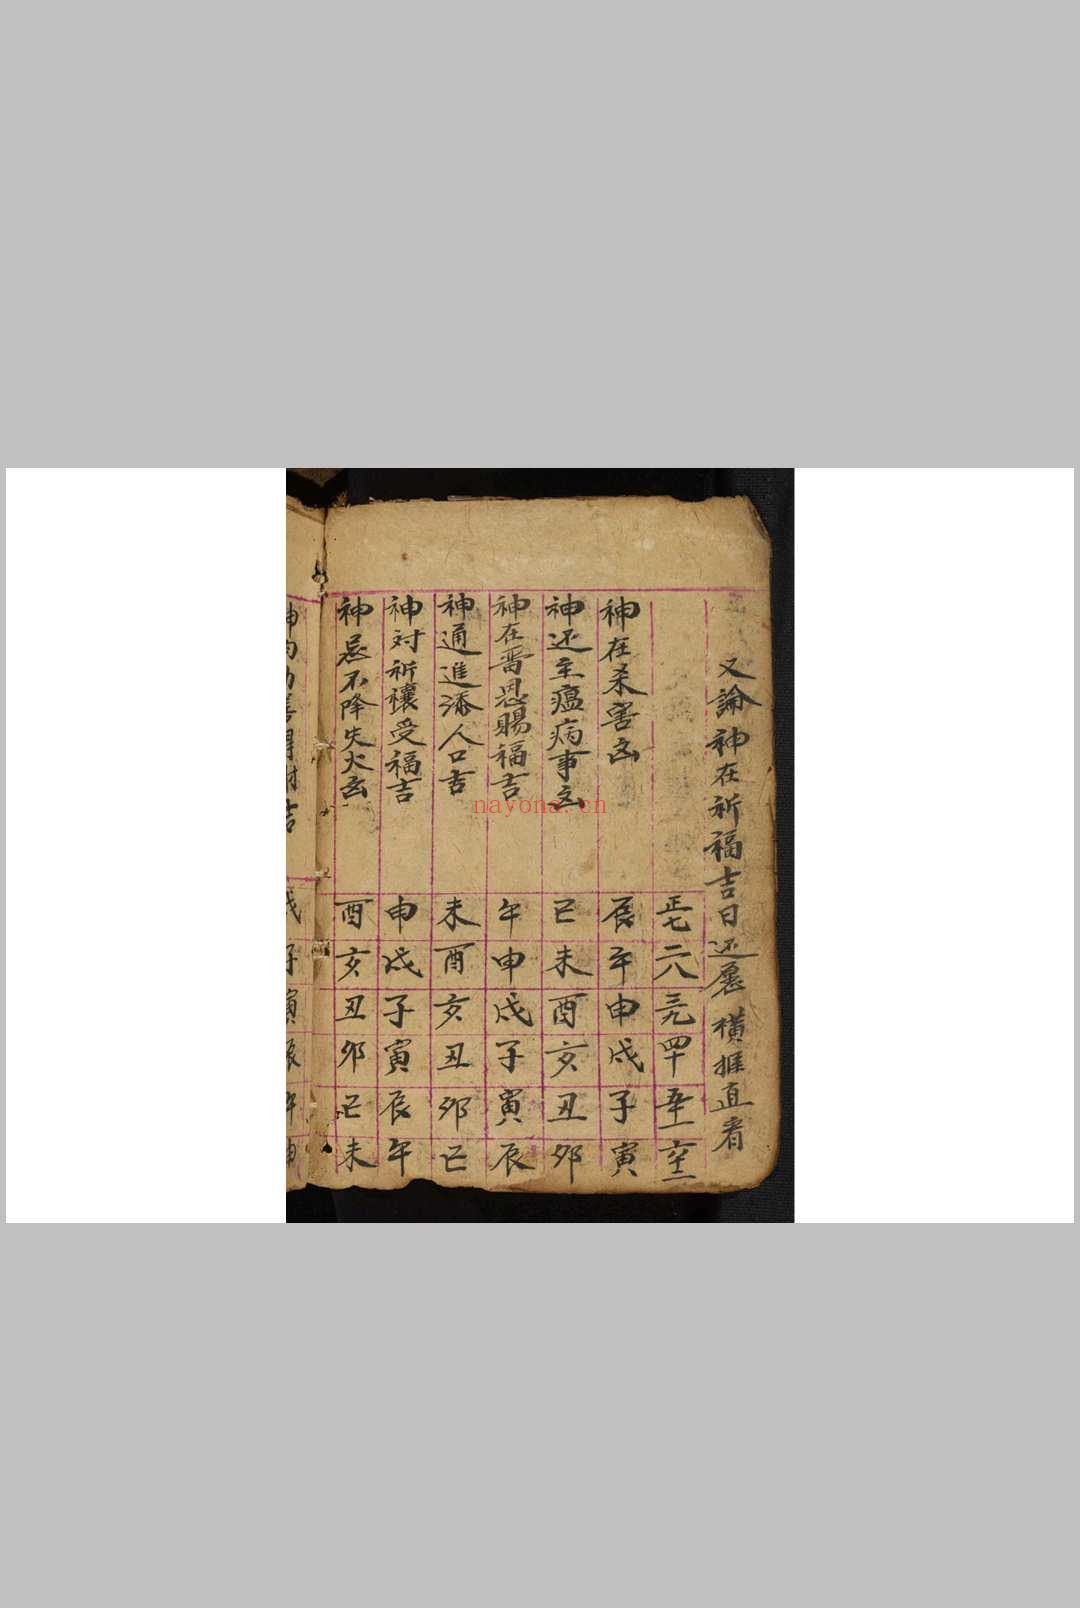 又論神在祈福吉日还愿橫推直看
正七 二八 三九 四十 五十一 六十二
神在杀害凶 辰 午 申 戌 子 寅
神还主瘟病事凶 巳 未 酉 亥 丑 卯
神在善恩賜福吉 午 申 戌 子 寅 辰
神通進添人口吉 未 酉 亥 丑 卯 巳
神対祈禳受福吉 申 戌 子 寅 辰 午
神忌不降失火凶 酉 亥 丑 卯 巳 未
nayona.cn